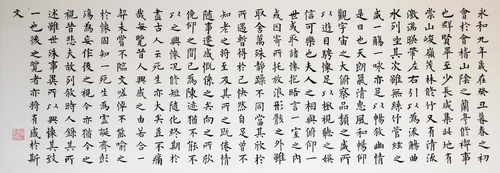 永和九年歲在癸丑暮春之初
會於會稽山陰之蘭亭修禊事
也群賢畢至少長咸集此地有
崇山峻嶺茂林修竹又有清流
激湍映帶左右引以為流觴曲
水列坐其次雖無絲竹管絃之
盛一觴一詠亦足以暢敘幽情
是日也天朗氣清惠風和暢仰
觀宇宙之大俯察品類之盛所
以遊目騁懷足以極視聽之娛
信可樂也夫人之相與俯仰一
世或取諸懷抱晤言一室之內
或因寄所託放浪形骸之外雖
取舍萬殊靜躁不同當其欣於
所遇暫得於己快然自足曾不
知老之將至及其所之既倦情
隨事遷感慨係之矣向之所欣
俛仰之間已為陳跡猶不能不
以之興懷況修短隨化終期於
盡古人云死生亦大矣豈不痛
哉每覽昔人興感之由若合一
契未嘗不臨文嗟悼不能喻之
於懷固知一死生為虛誕齊彭
殤為妄作後之視今亦猶今之
視昔悲夫故列敘時人錄其所
述雖世殊事異所以興懷其致
一也後之覽者亦將有感於斯
文